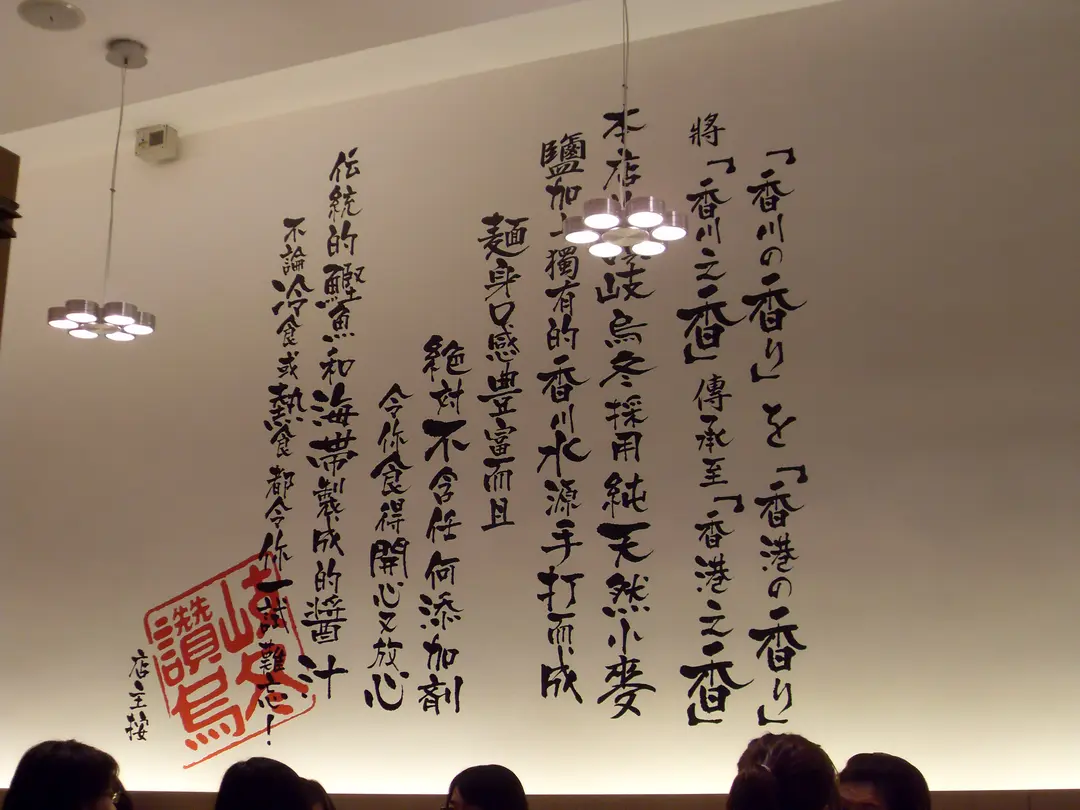 「香川の香り」を「香港の香り」
將「香川之香」傳承至「香港之香」
本店岐烏冬採用純天然小麥
鹽加上獨有的香川水源手打而成
麵身口感豊富而且
絶対不含任何添加剤
令你食得開心又放心
伝統的鰹魚和海帯製成的醬汁
不論冷食或熱食都令你一試難忘！
店主按
讚岐
烏冬